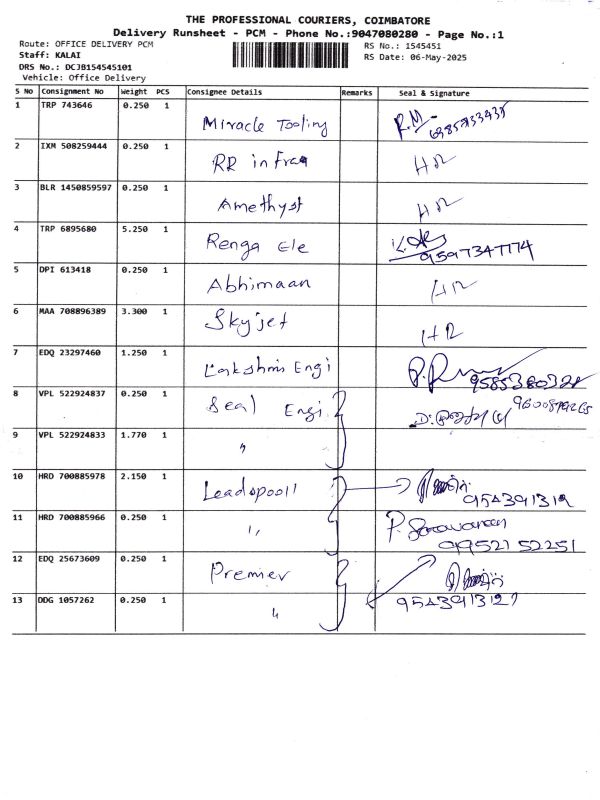 THE PROFESSIONAL COURIERS, COIMBATORE
Delivery Runsheet - PCM - Phone No.:9047080280 - Page No.:1
Route: OFFICE DELIVERY PCM
RS No.: 1545451
Staff: KALAI
RS Date: 06-May-2025
DRS No.: DCJB154545101
Vehicle: Office Delivery
S No Consignment No Weight PCS Consignee Details Remarks Seal & Signature
1 TRP 743646 0.250 1 Miracle Tooling R.M
2 IXM 508259444 0.250 1 RR infraa
3 BLR 1450859597 0.250 1 Amethyst
4 TRP 6895680 5.250 1 Renga Ele
9597347774
5 DPI 613418 0.250 1 Abhimaan
6 MAA 708896389 3.300 1 Skyjet
7 EDQ 23297460 1.250 1 Lakshmi Engi
8 VPL 522924837 0.250 1 Seal Engi
9 VPL 522924833 1.770 1 "
10 HRD 700885978 2.150 1 Leadspooll
11 HRD 700885966 0.250 1 " P. Saravanan
12 EDQ 25673609 0.250 1 Premier
13 DDG 1057262 0.250 1 "